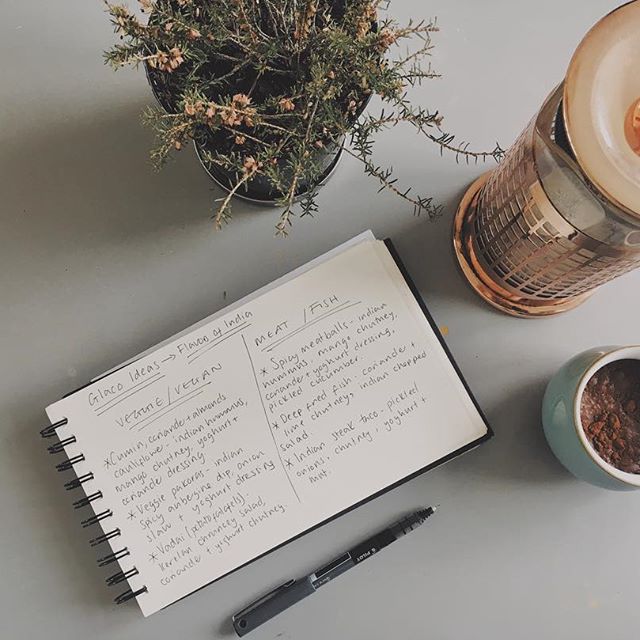 Glaco Ideas → Flavo of India
VEGGIE / VEGAN
* Cumin, coriander + almonds
cauliflower, indian hummus,
mango chutney, yoghurt +
coriander dressing
* Veggie pakoras - indian
spicy aubergine dip, onion
slaw + yoghurt dressing
* Vadai (potato
keralan chutney salad,
coriander + yoghurt chutney.
MEAT / FISH
* Spicy meatballs - indian
hummus, mango chutney,
coriander + yoghurt dressing,
pickled cucumber.
* Deep fried fish, coriander +
lime chutney, indian chopped
salad
* Indian steak taco - pickled
onions, chutney, yoghurt +
mint.
PILOT